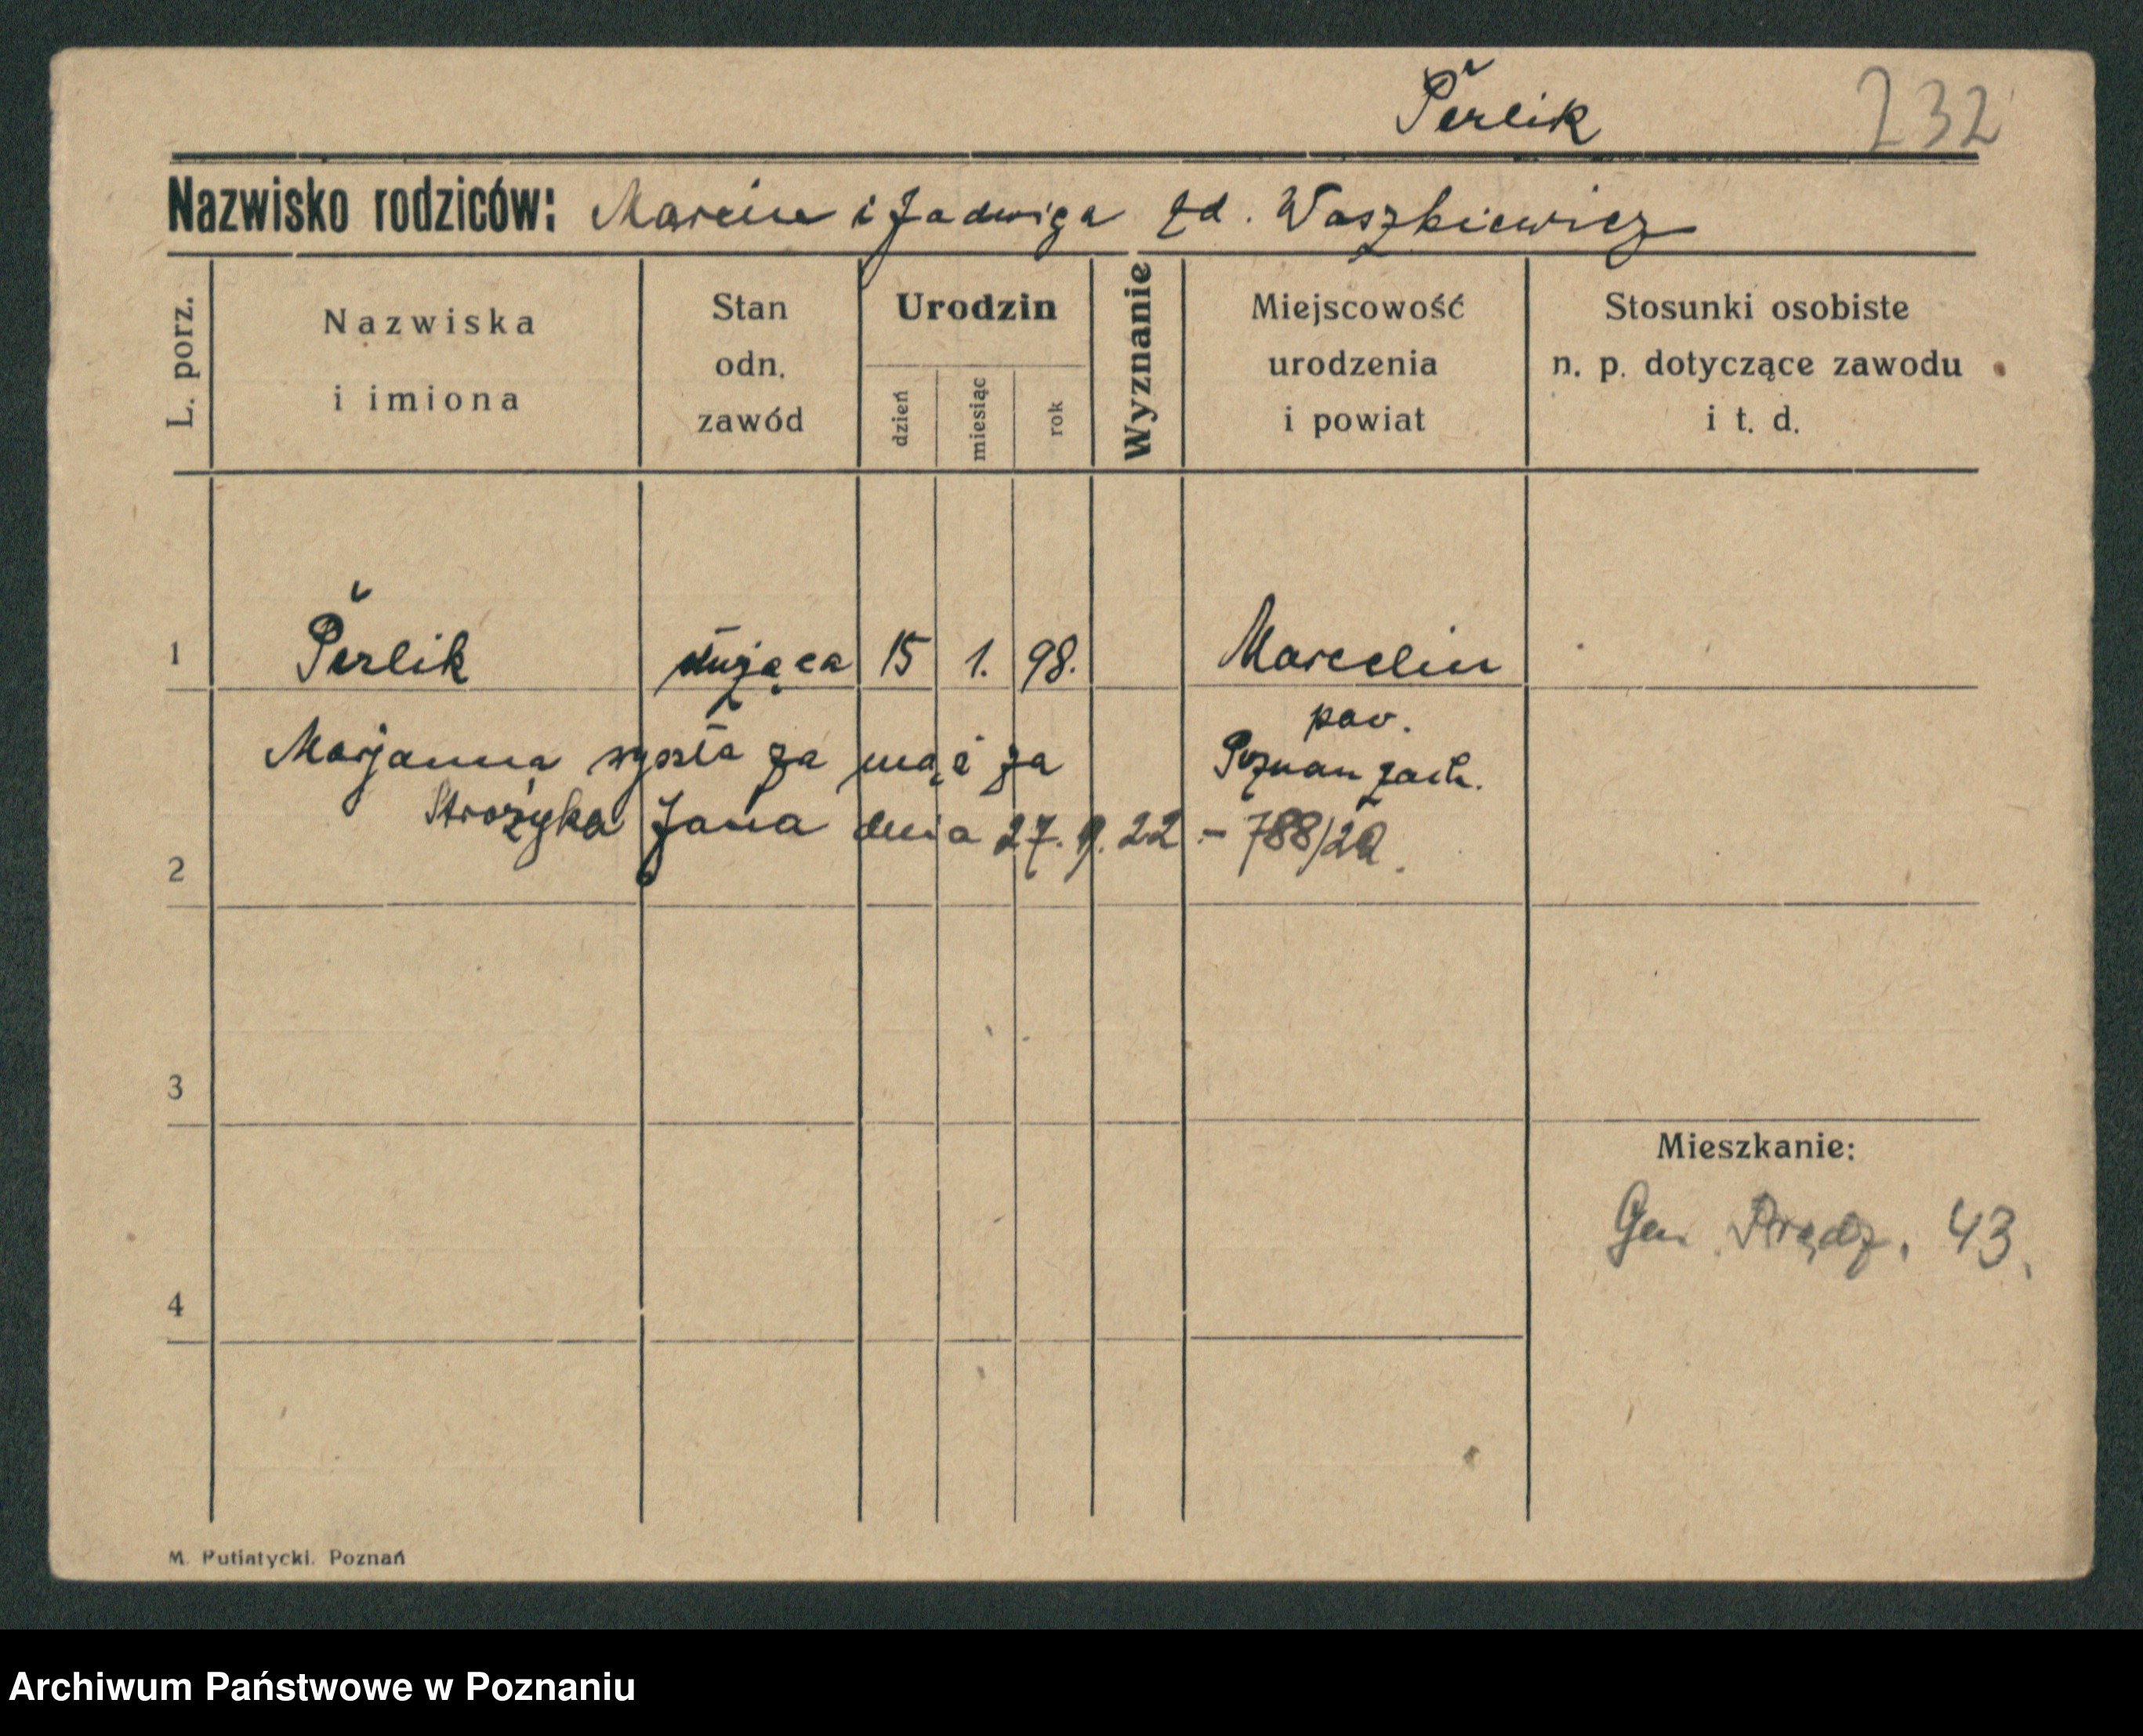 Perlik 232
Nazwisko rodziców: Marcin i Jadwiga zd. Waszkiewicz
L. porz.
Nazwiska
i imiona
Stan
odn.
zawód
Urodzin
dzień
miesiąc
rok
Wyznanie
Miejscowość
urodzenia
i powiat
Stosunki osobiste
n. p. dotyczące zawodu
i t. d.
1 Perlik służąca 15 1. 98. Marcelin
pow.
Marjanna wyszła za mąż za Poznań zach.
Strożyka Jana dnia 27. 9. 22 - 788/22.
2
3
Mieszkanie:
Gen. Prądz. 43.
4
M. Putiatycki. Poznań
Archiwum Państwowe w Poznaniu